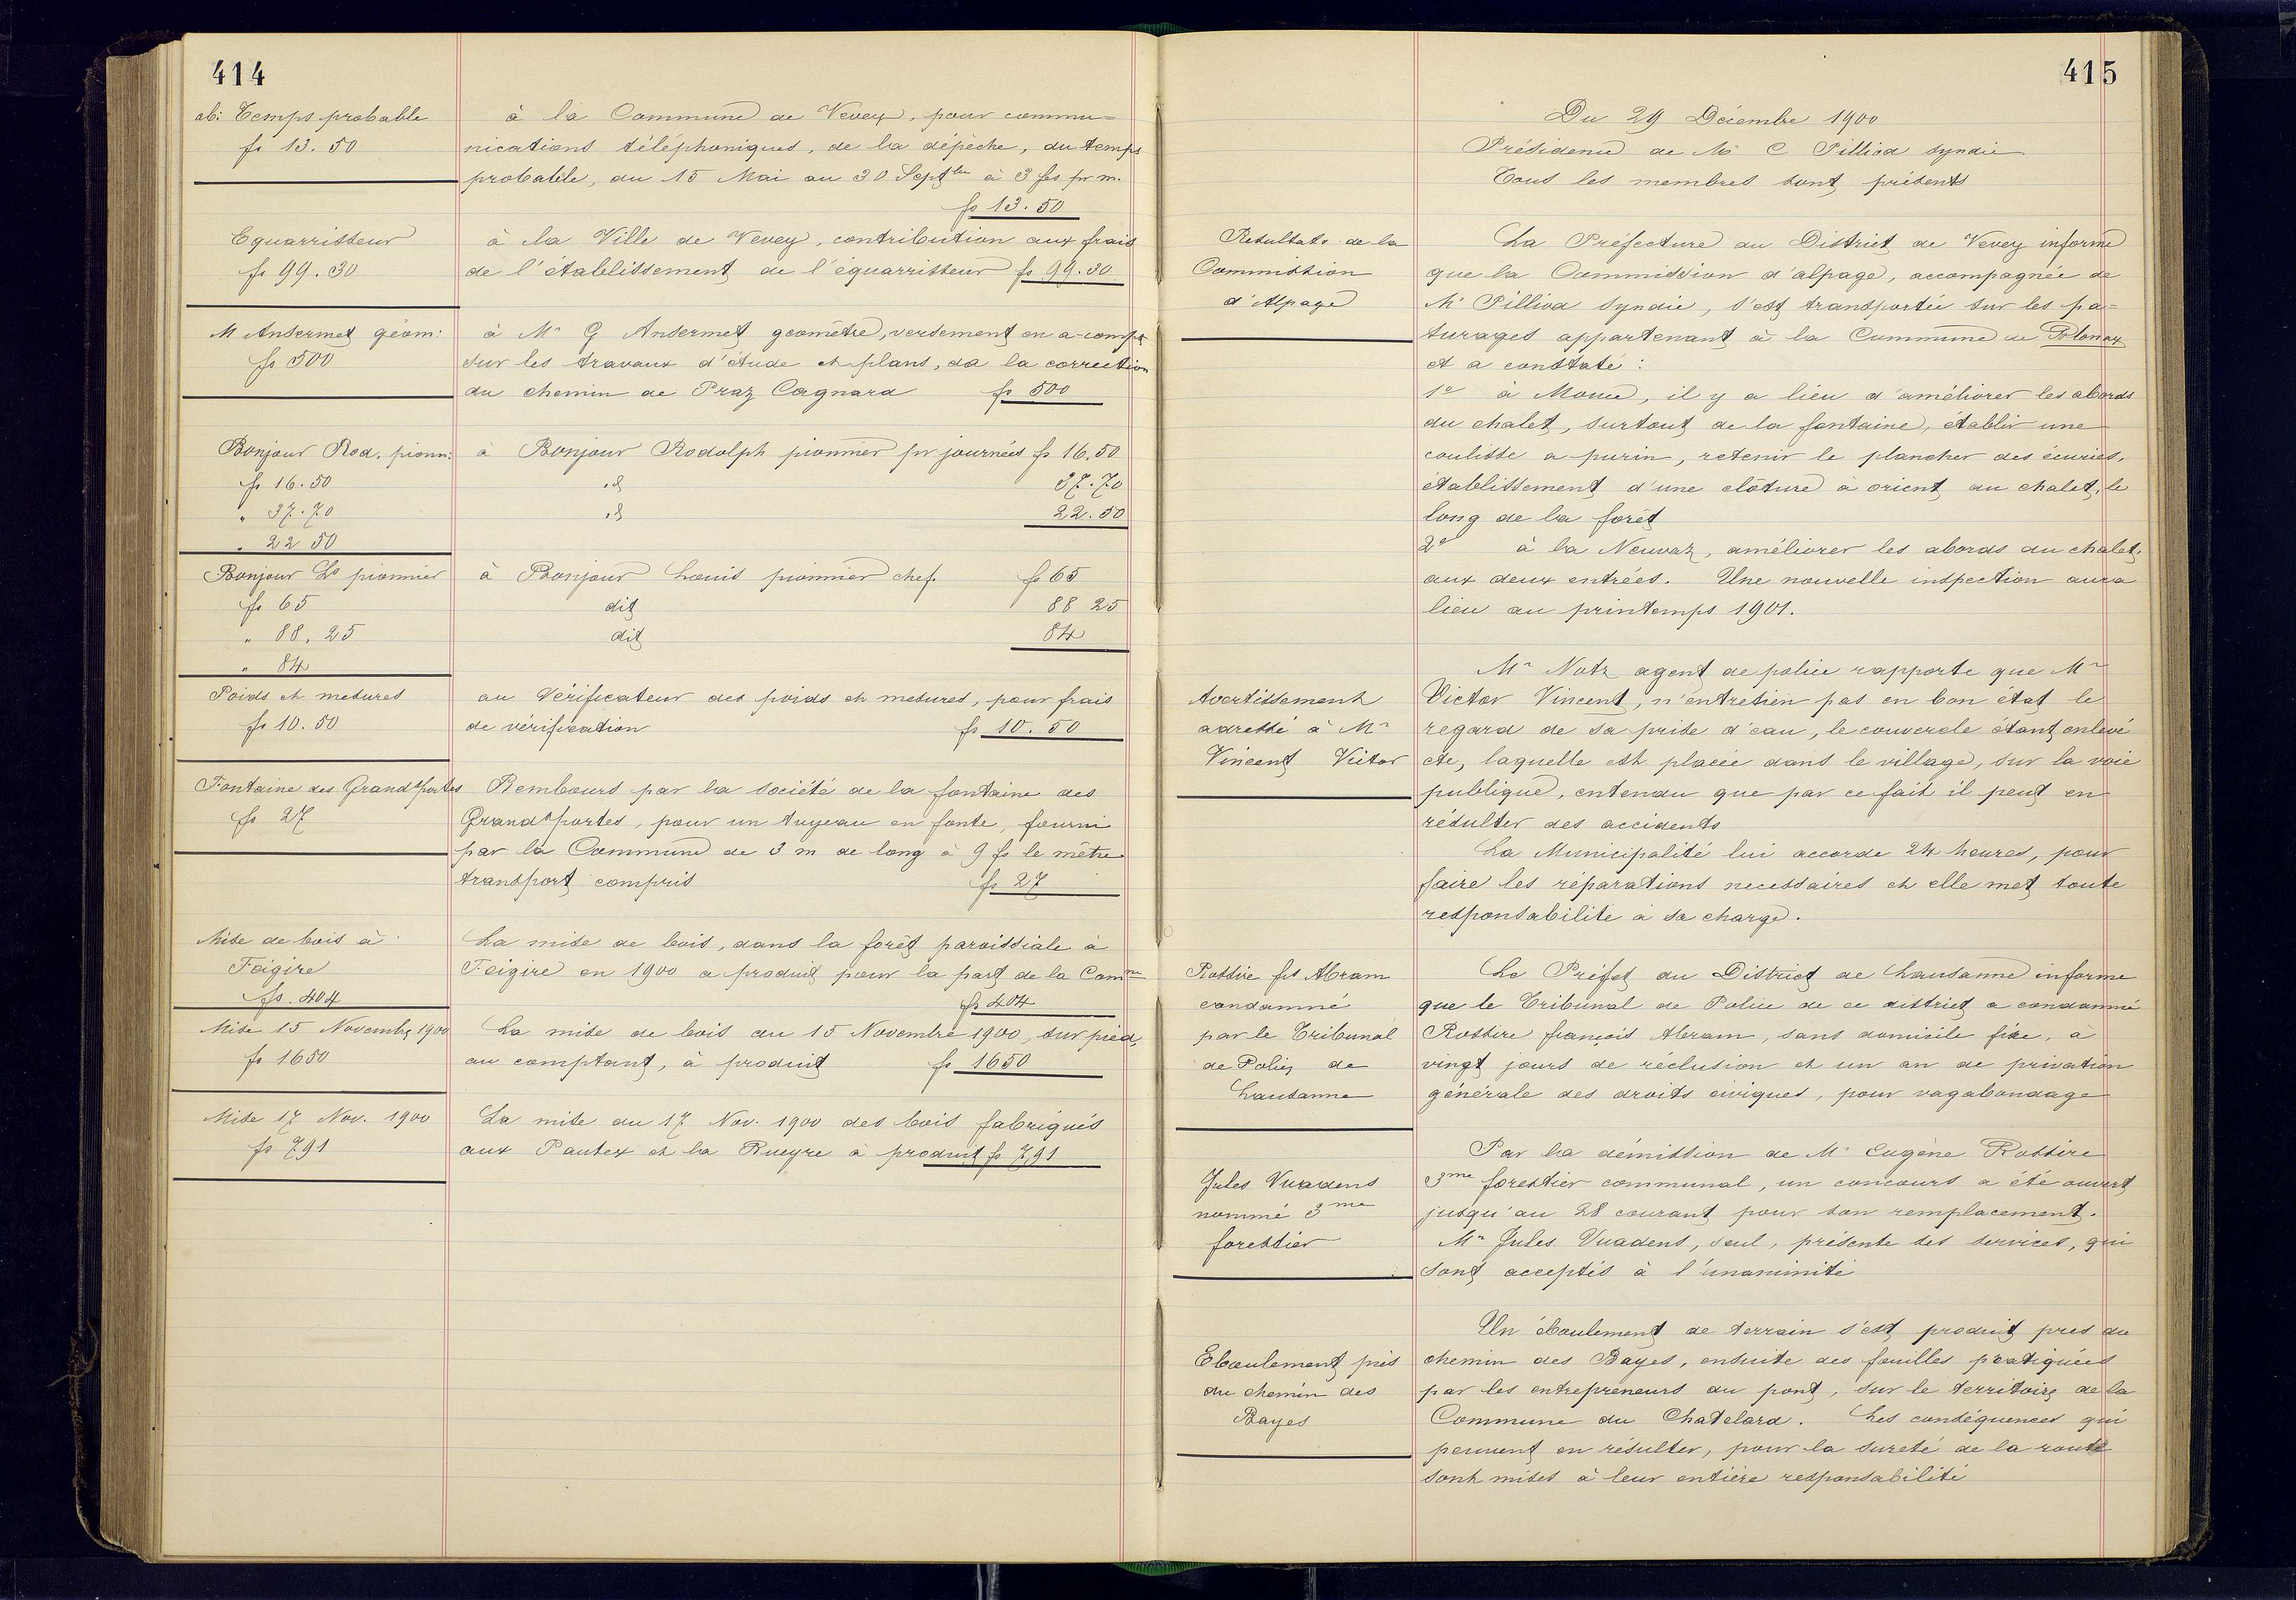 414
ab: Temps probable
fs 13.50
à la Commune de Vevey, pour commu=
nications téléphoniques, de la dépèche, du temps
probable, du 15 Mai au 30 Septbre à 3 fcs pr m.
fs 13.50
Equarrisseur
fs 99.30
à la Ville de Vevey, contribution aux frais
de l'établissement de l'équarrisseur fs 99.30
M Ansermet géom:
fs 500
à Mr G Ansermet géomètre, versement en a-compte
sur les travaux d'étude et plans, da la correction
du chemin de Praz Cagnard fs 500
Bonjour Rod. pionn:
fs 16.50
" 37.70
" 22 50
à Bonjour Rodolph pionnier pr journées fs 16.50
id 37.70
id 22.50
Bonjour Ls pionnier
fs 65
" 88.25
" 84
à Bonjour Louis pionnier chef. fs 65
dit 88 25
dit 84
Poids et mesures
fs 10.50
au Vérificateur des poids et mesures, pour frais
de vérification fs 10.50
Fontaine des Grands portes
fs 27
Rembours par la société de la fontaine des
Grands portes, pour un tuyeau en fonte, fourni
par la Commune de 3 m de long à 9 fs le mètre
transport compris fs 27
Mise de bois à
Feigire
fs. 404
La mise de bois, dans la forêt paroissiale à
Feigire en 1900 a produit pour la part de la Comne
fs 404
Mise 15 Novembre 1900
fs 1650
La mise de bois du 15 Novembre 1900, sur pied,
au comptant, à produit fs 1650
Mise 17 Nov. 1900
fs 791
La mise du 17 Nov. 1900 des bois fabriqués
aux Pautex et la Rueyre à produit fs 791
415
Du 29 Décembre 1900
Présidence de Mr C Pilliod syndic
Tous les membres sont présents
Resultats de la
Commission
d'Alpage
La Préfecture du District de Vevey informe
que la Commission d'alpage, accompagnée de
Mr Pilliod syndic, s'est transportée sur les pa=
turages appartenant à la Commune de Blonay
et a constaté :
1° à Mouse, il y a lieu d'améliorer les abords
du chalet, surtout de la fontaine, établir une
coulisse a purin, retenir le plancher des écuries,
établissement d'une clôture à orient du chalet, le
long de la forêt
2° à la Neuvaz, améliorer les abords du chalet,
aux deux entrées. Une nouvelle inspection aura
lieu au printemps 1901.
Avertissement
adressé à Mr
Vincent Victor
Mr Notz agent de police rapporte que Mr
Victor Vincent, n'entretien pas en bon état le
regard de sa prise d'eau, le couvercle étant enlevé
etc, laquelle est placée dans le village, sur la voie
publique, entendu que par ce fait il peut en
résulter des accidents
La Municipalité lui accorde 24 heures, pour
faire les réparations necessaires et elle met toute
responsabilité à sa charge.
Rossire fs Abram
condamné
par le Tribunal
de Police de
Lausanne
Le Préfet du District de Lausanne informe
que le Tribunal de Police de ce district a condamné
Rossire françois Abram, sans domicile fixe, à
vingt jours de réclusion et un an de privation
générale des droits civiques, pour vagabondage
Jules Vuadens
nommé 3me
forestier
Par la démission de Mr Eugène Rossire
3me forestier communal, un concours a été ouvert
jusqu'au 28 courant pour son remplacement.
Mr Jules Vuadens, seul, présente ses services, qui
sont acceptés à l'unanimité
Eboulement près
du chemin des
Bayes
Un éboulement de terrain s'est produit pres du
chemin des Bayes, ensuite des fouilles pratiquées
par les entrepreneurs du pont, sur le territoire de la
Commune du Chatelard. Les conséquences qui
peuvent en résulter, pour la sureté de la route
sont mises à leur entière responsabilité